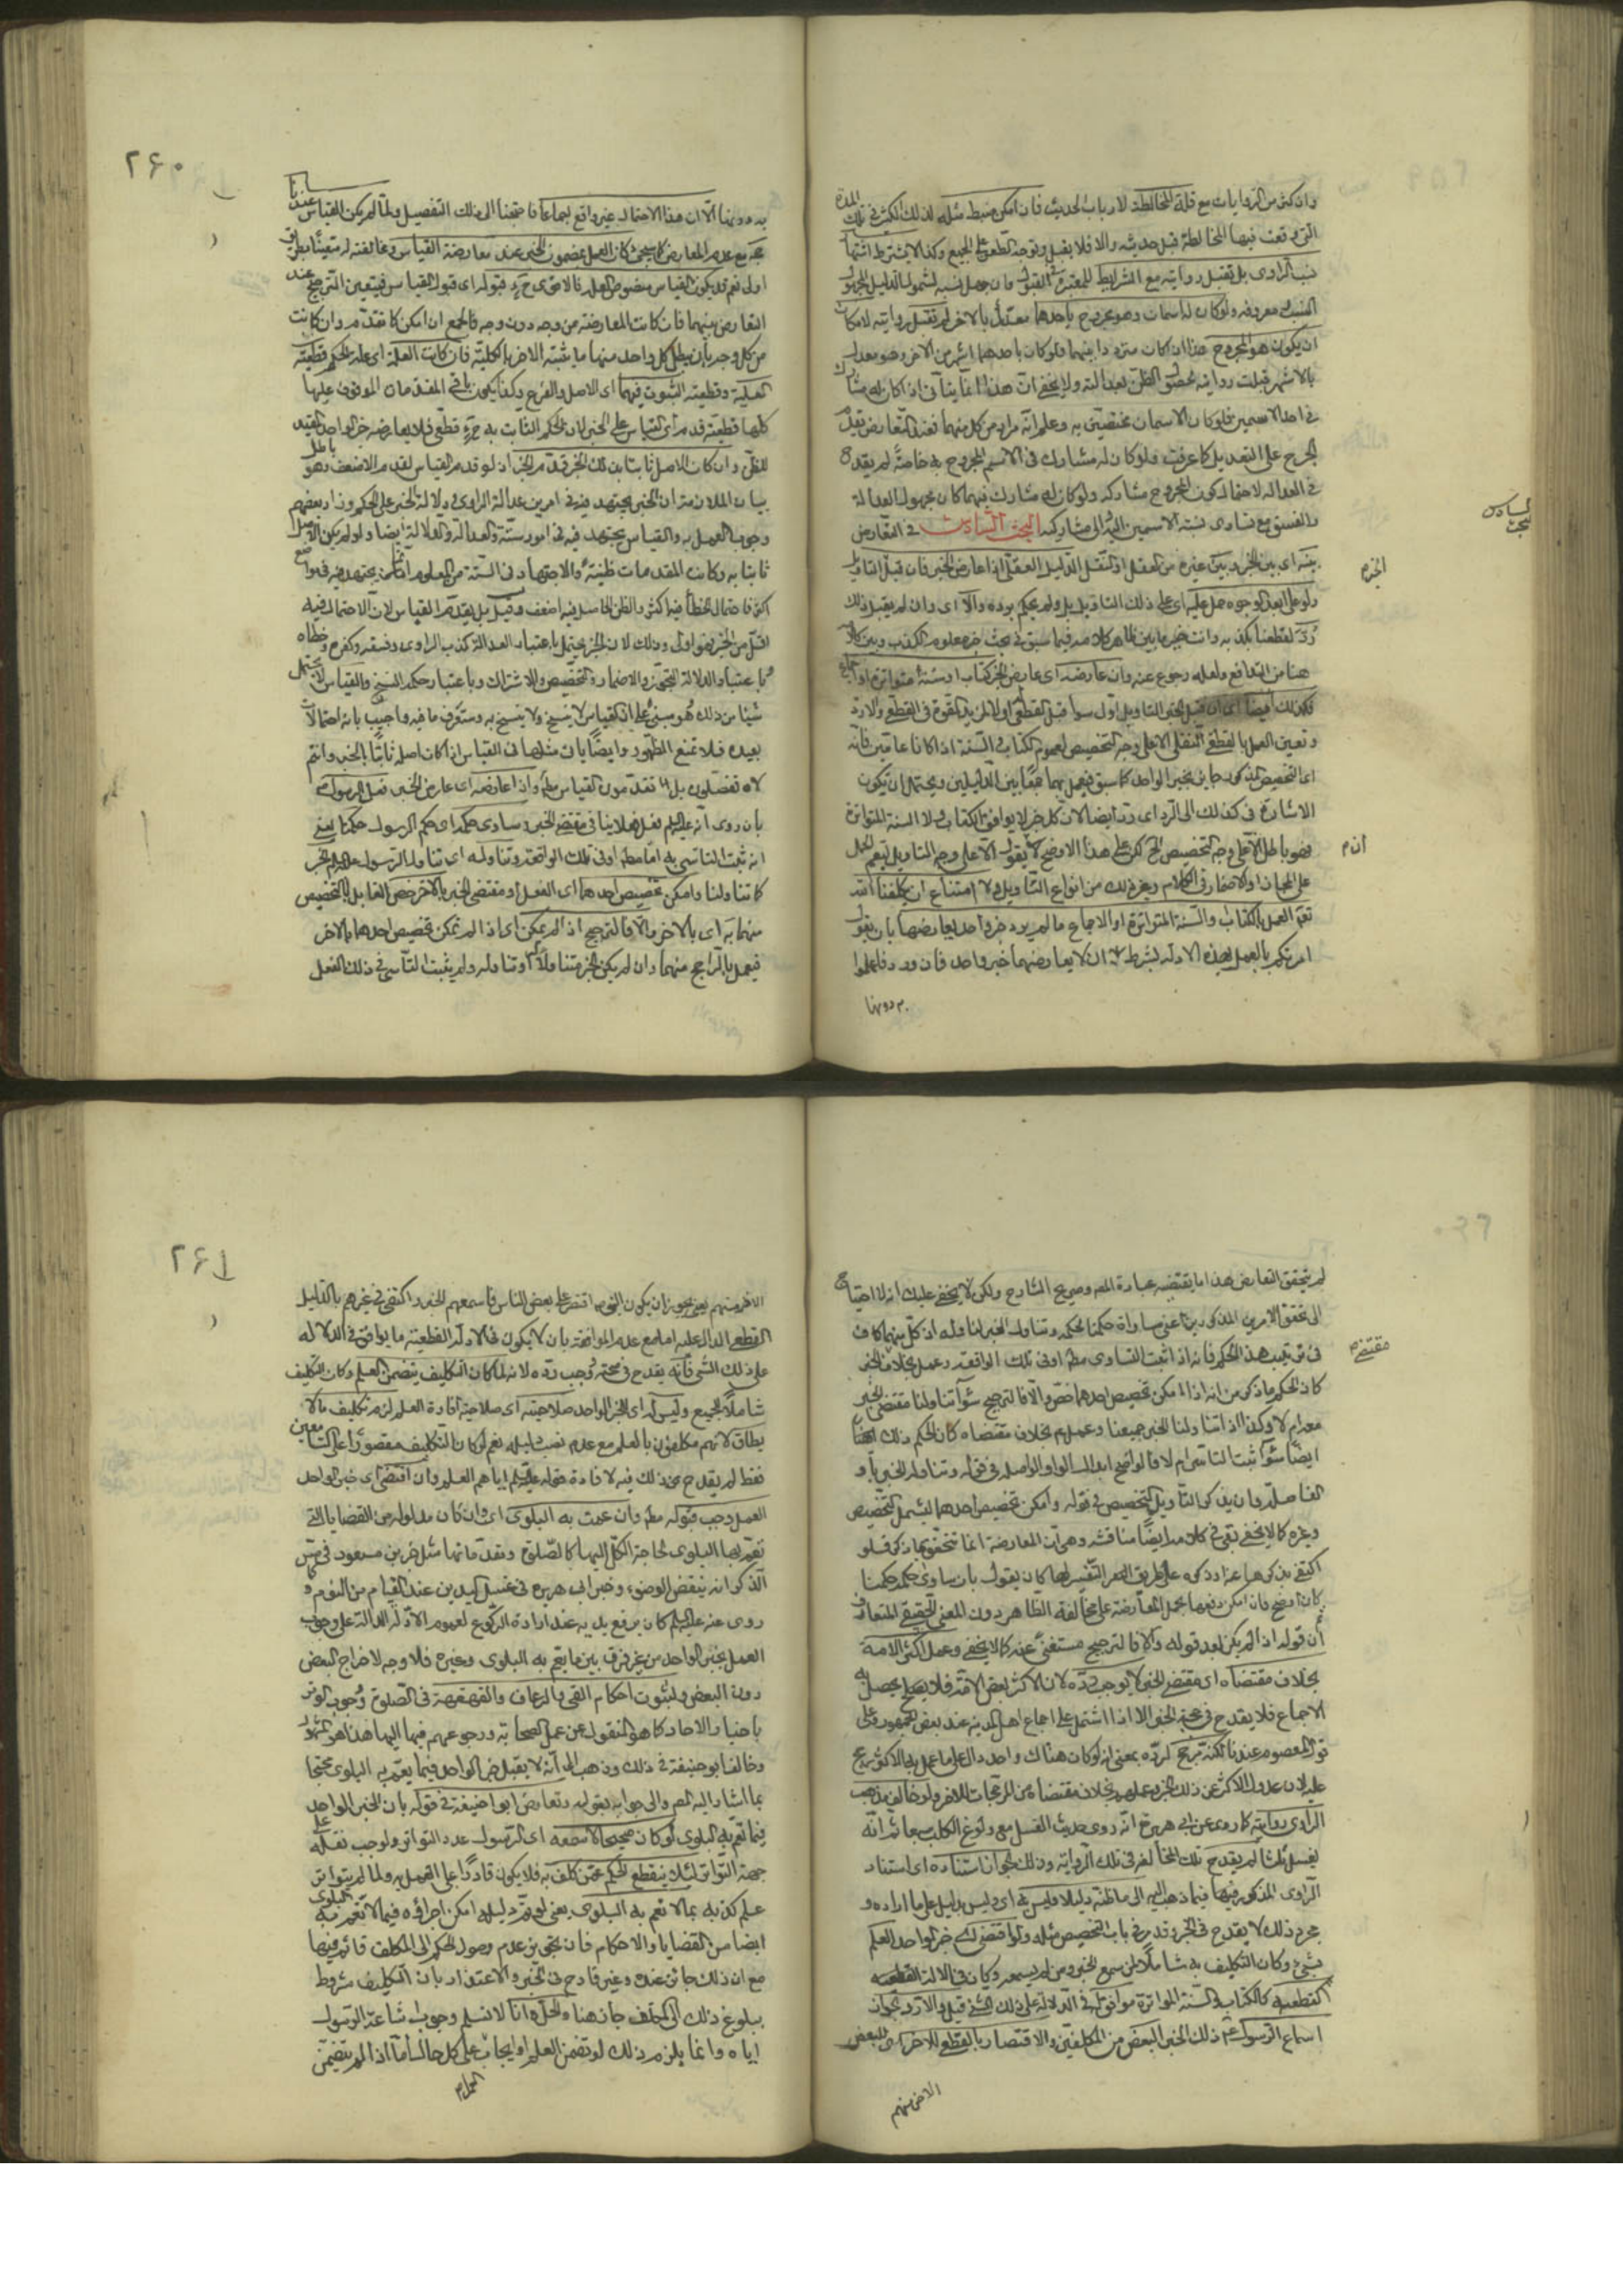 وان كثر من الروايات مع قلة المخالطة لارباب الحديث فان امكن ضبط مثله لذلك الكثير في تلك المدة
التى وقعت فيها المخالطة قبل حديثه والا فلا يقبل وتوجه الطعن على الجميع وكذا لا يشترط
نسب الراوى بل تقبل روايته مع الشرايط المعتبرة في القبول وان جهل نسبه لشمول الدليل المجهول
النسب معروفه ولو كان له اسمان وهو مجروح باحدهما معدل بالاخر لم تقبل روايته لامكان
ان يكون هو المجروح هذا ان كان مترددا بينهما فلو كان باحدهما اشهر من الاخر وهو معدل
بالاشهر قبلت روايته لحصول الظن بعدالته ولا يخفى ان هذا انما يتأتى اذا كان له مشارك
في احد الاسمين فلو كان الاسمان مختصين به وعلم انه مراد من كل منهما فعند التعارض تقديم
الجرح على التعديل كما عرفت ولو كان له مشارك في الاسم المجروح به خاصة لم يقدح
في العدالة لاحتمال كون المجروح مشاركه ولو كان له مشارك فيهما كان مجهول العدالة
والفسق مع تساوى نسبة الاسمين اليه والى مشاركه البحث السادس في التعارض
البحث السادس
بينه اى بين الخبر وبين غيره من العقل او النقل الدليل العقلى اذا عارض الخبر فان قبل التاويل
الخبر م
ولو على ابعد الوجوه حمل عليه اى على ذلك التاويل ولم يحكم برده والا اى وان لم يقبل ذلك
رد لقطعنا بكذبه وانت خبير بما بين ظاهر كلامه فيما سبق في بحث خبر معلوم الكذب وبين كلامه
هنا من التدافع ولعله رجوع عنه وان عارضه اى عارض الخبر كتاب او سنة متواترة او اجماع
فكذلك ايضا اى ان قبل الخبر التاويل اول سواء قبل القطعى اولا لمزيد القوة في القطعى والا رد
وتعين العمل بالقطعى النقلى الا على وجه التخصيص لعموم الكتاب والسنة اذا كانا عامين فانه
اى التخصيص المذكور جايز بخبر الواحد كما سبق فيعمل بهما جمعا بين الدليلين ويحتمل ان يكون
الاشارة في كذلك الى الرد اى رد ايضا لان كل خبر لا يوافق الكتاب ولا السنة المتواترة
فهو باطل الا على وجه التخصيص الخ لكن على هذا الاوضح ان يقول الا على وجه التاويل ليعم الحمل
ان م
على المجاز او الاضمار في الكلام وغير ذلك من انواع التاويل ولا امتناع ان يكلفنا الله
تعم العمل بالكتاب والسنة المتواترة او الاجماع ما لم يرد خبر واحد يعارضها بان يقول
امرتكم بالعمل بهذه الادلة بشرط ان لا يعارضهما خبر واحد فان ورد فاعملوا
به دونها
٢٦٠
به دونها الا ان هذا الاحتمال غير واقع اجماعا فاحتجنا الى ذلك التفصيل ولما لم يكن القياس عندنا
حجة مع عدم المعارض كما سيجئ كان العمل بمضمون الخبر عند معارضة القياس ومخالفته له متعينا بطريق
اولى نعم قد يكون القياس منصوص العلة فالاقوى ح قبوله اى قبول القياس فيتعين الترجيح عند
التعارض بينهما فان كانت المعارضة من وجه دون وجه فالجمع ان امكن كما تقدم وان كانت
من كل وجه بان يبطل كل واحد منهما ما يثبته الاخر بالكلية فان كانت العلة اى علة الحكم قطعية
العلية وقطعية الثبوت فيهما اى الاصل والفرع وكذا يكون باقى المقدمات الموقوف عليها
كلها قطعية قدم اى القياس على الخبر لان الحكم الثابت به ح قطعى فلا يعارضه خبر الواحد المفيد
للظن وان كان الاصل ثابتا بذلك الخبر قدم الخبر اذ لو قدم القياس لقدم الاضعف وهو باطل
بيان الملازمة ان الخبر يجتهد فيه في امرين عدالة الراوى ودلالة الخبر على الحكم وزاد بعضهم
وجوب العمل به والقياس يجتهد فيه في امور ستة والعدالة والدلالة ايضا ولو لم يكن الاصل
ثابتا به وكانت المقدمات ظنية والاجتهاد في الستة من المعلوم ان ما يجتهد فيه في مواضع
اكثر فاحتمال الخطأ فيه اكثر والظن الحاصل فيه اضعف وقيل بل يقدم القياس لان الاحتمال فيه
اقل من الخبر فهو اولى وذلك لان الخبر يحتمل باعتبار العدالة كذب الراوى وفسقه وكفره وخطأه
وباعتبار الدلالة التجوز والاضمار والتخصيص والاشتراك وباعتبار حكمه النسخ والقياس لا يحتمل
شيئا من ذلك وهو مبنى على ان القياس لا ينسخ ولا ينسخ به وستعرف ما فيه واجيب بانه احتمالات
بعيدة فلا تمنع الظهور وايضا يأتى مثلها في القياس اذا كان اصله ثابتا بالخبر وانتم
لا تفصلون بل تقدمون القياس مطلقا واذا عارضه اى عارض الخبر فعل الرسول
بان روى انه عليه السلم فعل فعلا ينافى مقتضى الخبر وساوى حكمه اى حكم الرسول حكمنا بمعنى
انه ثبت التاسى به اما مطلقا او في تلك الواقعة وتناوله اى تناول الرسول عليه السلم الخبر
كما تناولنا وامكن تخصيص احدهما اى الفعل او مقتضى الخبر بالاخر خص القابل للتخصيص
منهما به اى بالاخر والا فالترجيح اذ لم يمكن اى اذا لم يمكن تخصيص احدهما بالاخر
فيعمل بالراجح منهما وان لم يكن الخبر متناولا له او تناوله ولم يثبت التأسى في ذلك الفعل
لم يتحقق التعارض هذا ما يقتضيه عبارة المص وصريح الشارح ولكن لا يخفى عليك انه لا احتياج
الى تحقق الامرين المذكورين اعنى مساواة حكمنا لحكمه وتناول الخبر لنا وله اذ كل منهما كاف
في ترتيب هذا الحكم فانه اذا ثبت التساوى مطلقا او في تلك الواقعة وعمل بخلاف الخبر
مقتضى م
كان الحكم ما ذكر من انه اذا امكن تخصيص احدهما خص والا فالترجيح سواء تناولنا مقتضى الخبر
معه ام لا وكذا اذا تناولنا الخبر جميعنا وعمل هو بخلاف مقتضاه كان الحكم ذلك
ايضا سواء ثبت التاسى ام لا فالواضح ابدال الواو الواصلة في قوله وتناوله الخبر باو
الفاصلة وان يذكر التاويل كالتخصيص في قوله وامكن تخصيص احدهما ليشمل التخصيص
وغيره كما لا يخفى بقى في كلامه ايضا مناقشة وهى ان المعارضة انما تتحقق بما ذكر فلو
اكتفى بذكرها عما ذكره على طريق التفسير لها كان يقول بان ساوى حكمه حكمنا
كان اوضح فان امكن دفعها بحمل المعارضة على مخالفة الظاهر دون المعنى الحقيقى المتعارف
ثم ان قوله اذا لم يكن بعد قوله والا فالترجيح مستغنى عنه كما لا يخفى وعمل اكثر الامة
بخلاف مقتضاه اى مقتضى الخبر لا يوجب رده لان الاكثر بعض الامة فلا يحصل به
الاجماع فلا يقدح في حجية الخبر الا اذا اشتمل على اجماع اهل المدينة عند بعض الجمهور وعلى
قول المعصوم عندنا لكنه يرجح لرده بمعنى انه لو كان هناك واحد دال على ما عمل به الاكثر يرجح
عليه لان عدول الاكثر عن ذلك الخبر وعملهم بخلاف مقتضاه من المرجحات للاخر ولو خالف مذهب
الراوى روايته كما روى عن ابى هريرة انه روى حديث الغسل مع ولوغ الكلب سبعا ثم انه
يغسل ثلثا لم يقدح تلك المخالفة في تلك الرواية وذلك لجواز استناده اى استناد
الراوى المذكور فيها فيما ذهب اليه الى ما ظنه دليلا وليس به اى وليس بدليل على ما اراده و
مجرد ذلك لا يقدح في الخبر وقد مر في باب التخصيص مثله ولو اقتضى خبر الواحد العلم
بشئ وكان التكليف به شاملا لمن سمع الخبر ومن لم يسمعه وكان في الادلة القطعية
القطعية كالكتاب والسنة المتواترة موافق له في الدلالة على ذلك الشئ قبل والا رد لجواز
اسماع الرسول ذلك الخبر البعض من المكلفين والاقتصار بالقطعى للاخر اى للبعض
الاخر منهم
٢٦١
الاخر منهم يعنى يجوز ان يكون النبى اقتصر على بعض الناس فاسمعهم الخبر واكتفى في غيرهم بالدليل
القطعى الدال عليه اما مع عدم الموافقة بان لا يكون في الادلة القطعية ما يوافق في الدلالة
على ذلك الشئ فانه يقدح في صحته وجب رده لانه لما كان التكليف يتضمن العلم وكان التكليف
شاملا للجميع وليس له اى الخبر الواحد صلاحيته اى صلاحية افادة العلم لزم تكليف ما لا
يطاق لانهم مكلفون بالعلم مع عدم نصب دليله نعم لو كان التكليف مقصورا على السامعين
فقط لم يقدح بخبر ذلك فيه لافادة قوله عليه السلم اياهم العلم وان اقتضى اى خبر الواحد
العمل وجب قبوله مطلقا وان عمت به البلوى اى وان كان مدلوله من القضايا التى
تعم بها البلوى لحاجة الكل اليها كالصلوة ومقدماتها مثل خبر بن مسعود في مس
الذكر انه ينقض الوضوء وخبر ابى هريرة في غسل اليدين عند القيام من النوم وما
روى عنه عليه السلم كان يرفع يديه عند ارادة الركوع لعموم الادلة الدالة على وجوب
العمل بخبر الواحد من غير فرق بين ما يعم به البلوى وغيره فلا وجه لاخراج البعض
دون البعض ولثبوت احكام القى والرعاف والقهقهة في الصلوة وجوب الوتر
باخبار الاحاد كما هو المنقول عن عمل الصحابة ورجوعهم فيها اليها هذا هو المشهور
وخالف ابو حنيفة في ذلك وذهب الى انه لا يقبل خبر الواحد فيما يعم به البلوى محتجا
بما اشار اليه المص والى جوابه بقوله وتعارض ابو حنيفة في قوله بان الخبر الواحد
فيما تعم به البلوى لو كان صحيحا لاسمعه اى الرسول عدد التواتر ولوجب نقله على
جهة التواتر لئلا ينقطع الحكم عمن كلف به فلا يكون قادرا على العمل به ولما لم يتواتر
علم كذبه بما لا تعم به البلوى يعنى لو تم دليله امكن اجرائه فيما لا تعم به البلوى
ايضا من القضايا والاحكام فان تجويز عدم وصول الحكم الى المكلف قائم فيها
مع ان ذلك جائز عنده وغير قادح في الخبر والاعتذار بان التكليف مشروط
ببلوغ ذلك الى المكلف جاز هنا والحل انا لا نسلم وجوب اشاعة الرسول
اياه وانما يلزم ذلك لو تضمن العلم او ايجابه على كل حال اما اذا لم يتضمن
العلم م